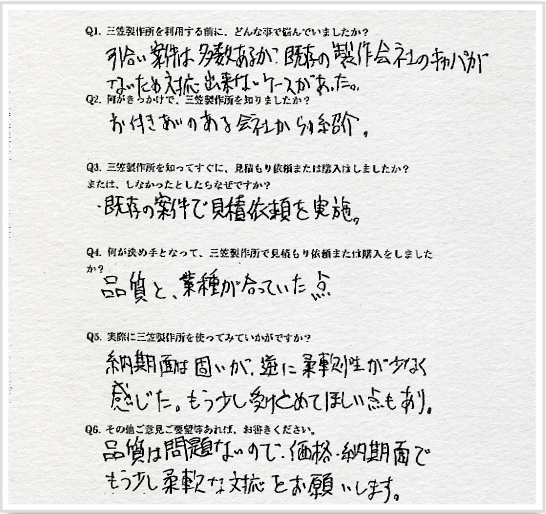 Q1. 三笠製作所を利用する前に、どんな事で悩んでいましたか？
引合い案件は多数あるが、既存の製作会社のキャパが
ないため対応出来ないケースがあった。
Q2. 何がきっかけで、三笠製作所を知りましたか？
お付きあいのある会社から紹介。
Q3. 三笠製作所を知ってすぐに、見積もり依頼または購入はしましたか？
または、しなかったとしたらなぜですか？
・既存の案件で見積依頼を実施。
Q4. 何が決め手となって、三笠製作所で見積もり依頼または購入をしました
か？
品質と、業種が合っていた点
Q5. 実際に三笠製作所を使ってみていかがですか？
納期面は固いが、逆に柔軟性が少なく
感じた。もう少し受けとめてほしい点もあり。
Q6. その他ご意見ご要望等あれば、お書きください。
品質は問題ないので、価格・納期面で
もう少し柔軟な対応をお願いします。